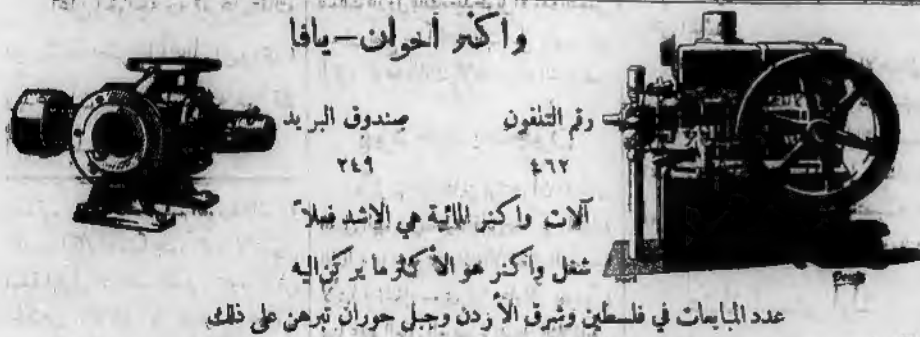 واكنر أخوان – يافا
رقم التلفون صندوق البريد
٤٦٢ ٢٤٩
آلات واكنر المائية هي الاشد فعلاً
شغل واكنر هو الأكثر ما يركن اليه
عدد المبايعات في فلسطين وشرق الأردن وجبل حوران تبرهن على ذلك